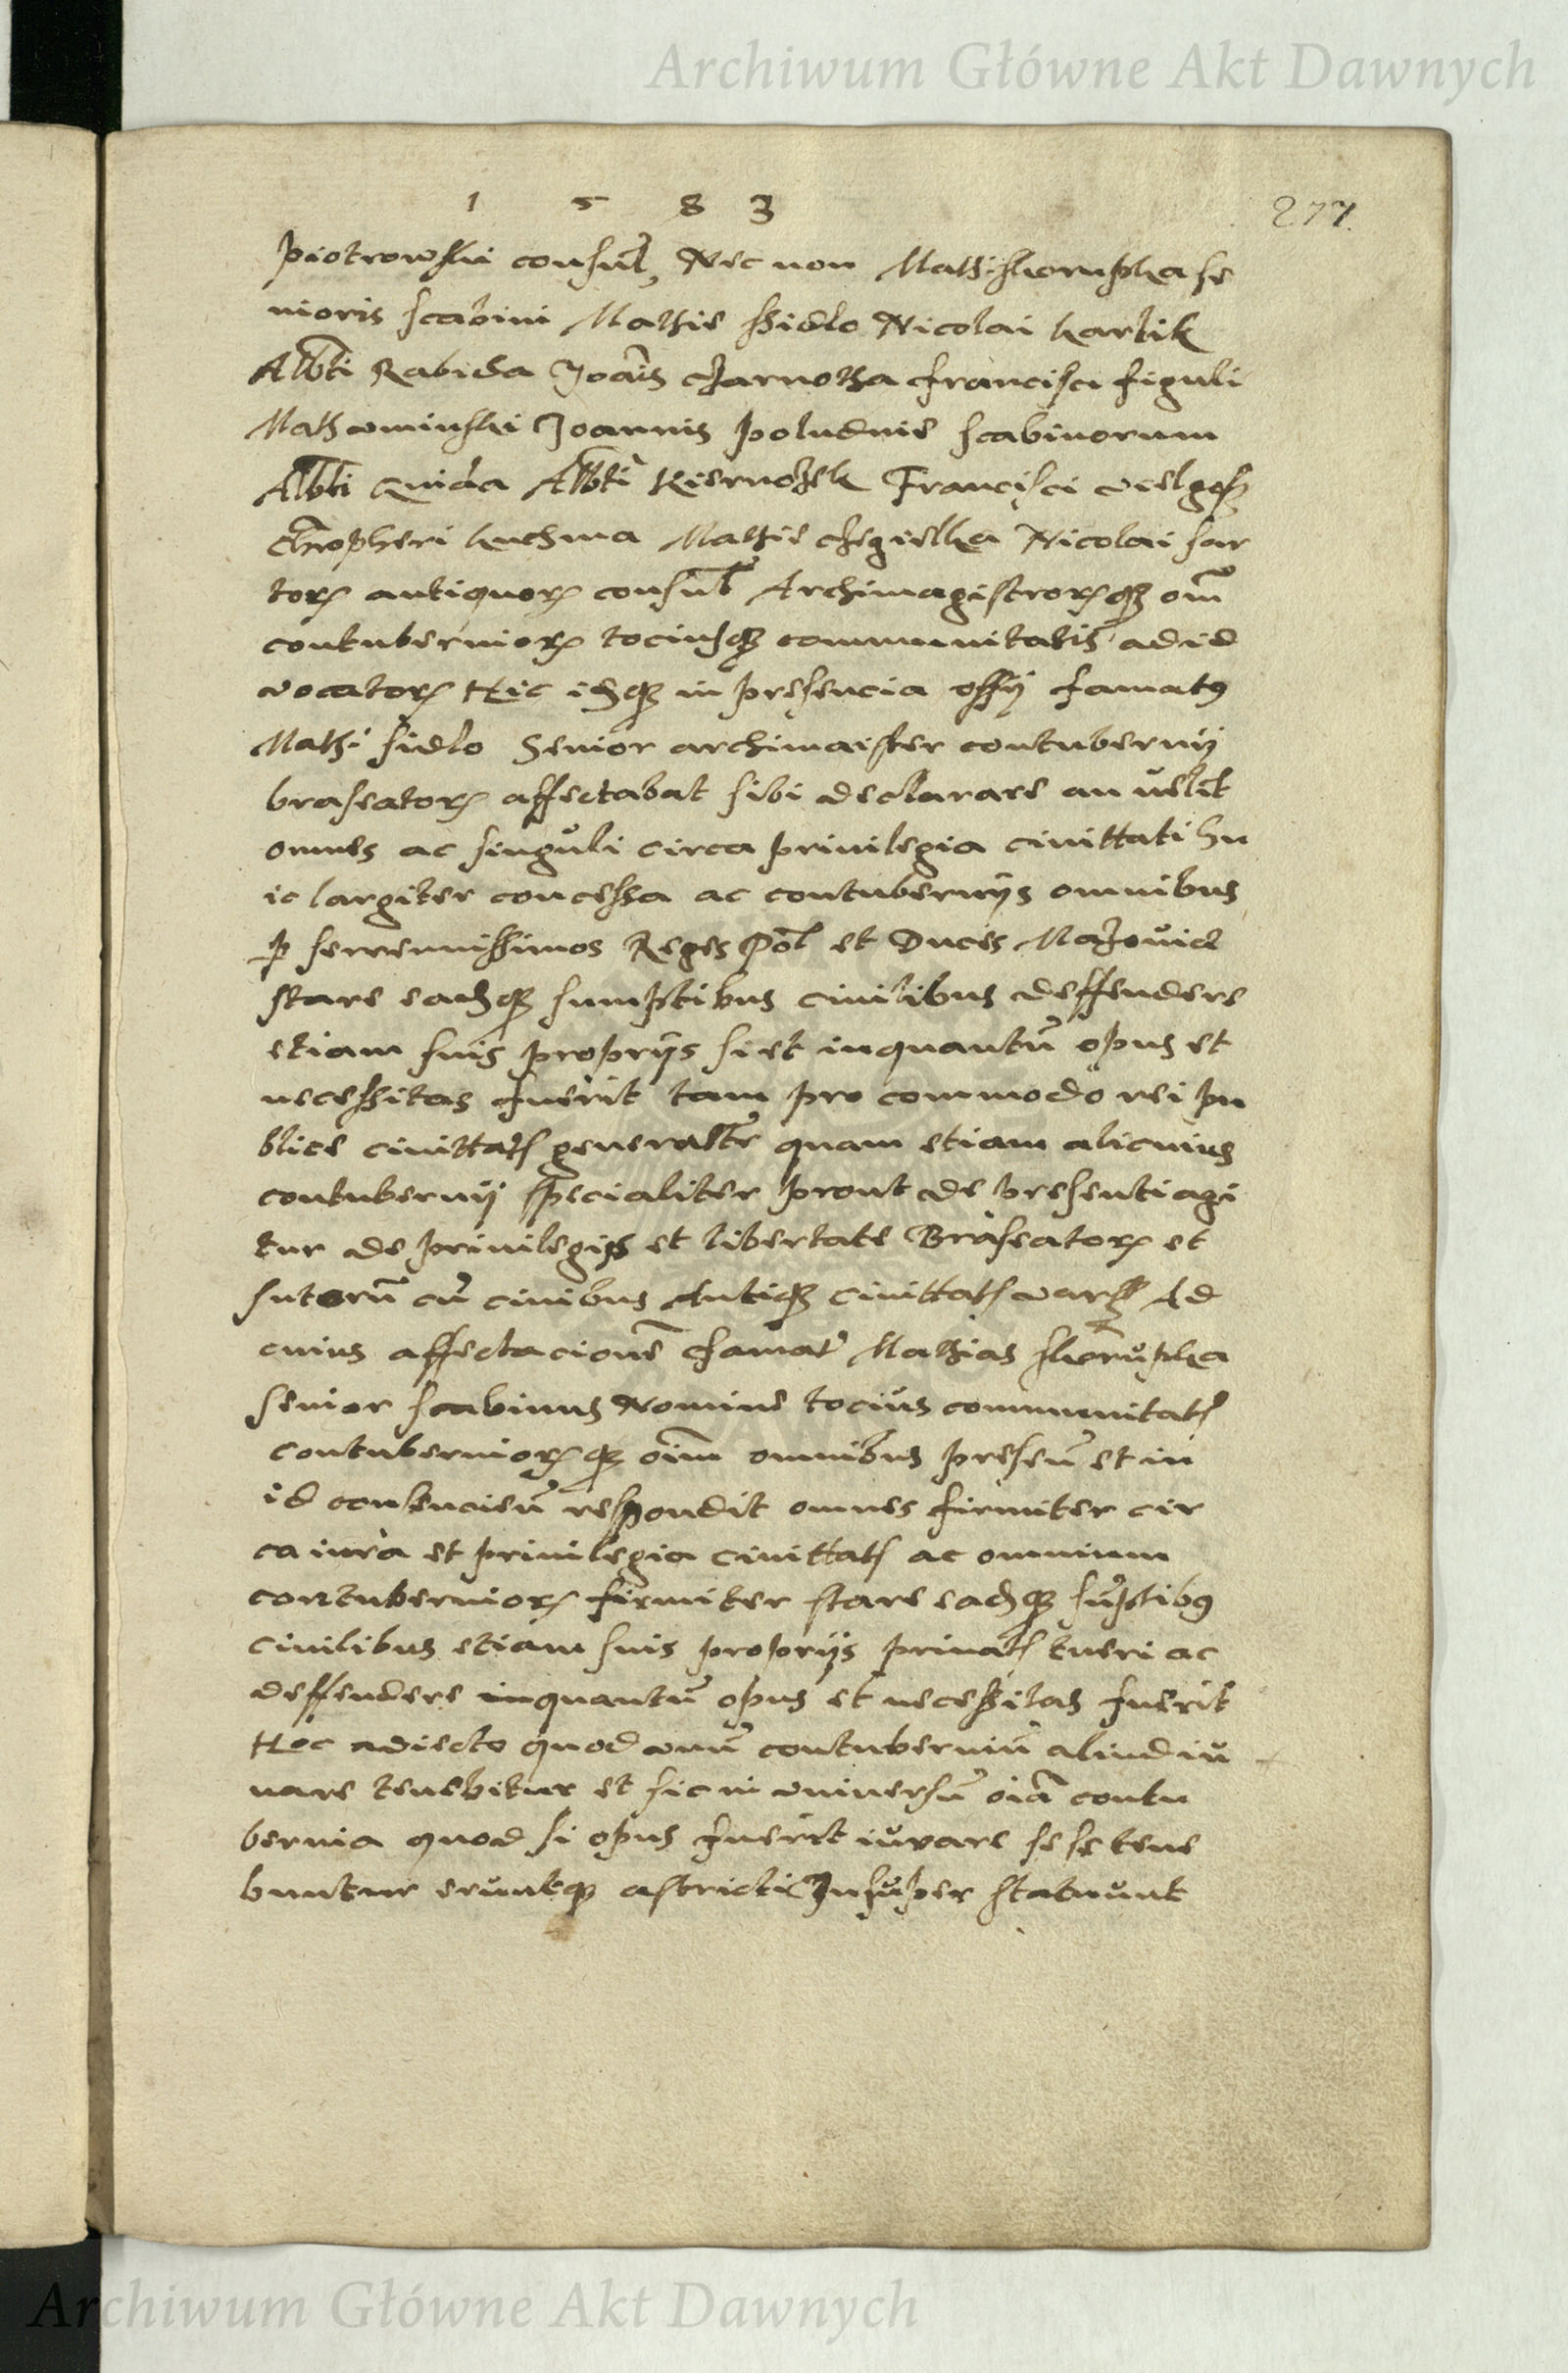 Archiwum Główne Akt Dawnych
1 5 8 3
277.
Piotrowski consul, Nec non Math: skorupka se
nioris scabini Mathie ssidlo Nicolai karlik
Albti Rabida Joāis czarnotha francisci figuli
Math: wminski Joannis poludnie scabinorum
Albti Albti kiernozek Francisci
kuchma Mathie czegielka Nicolai sar
torꝝ antiquorꝝ consul Archimagistrorꝝqꝫ om̄
contuberniorꝝ tociusqꝫ communitatis ad id
vocatorꝝ Hic idqꝫ in presencia offij famatꝰ
Math: sidlo Senior archimaister contubernij
braseatorꝝ affectabat sibi declarare an velit
omnes ac singuli circa privilegia civittati hu
ic largiter concessa ac contubernijs omnibus
ꝑ serrenissimos Reges Pol et Duces Mazovie
stare eadqꝫ sumptibus civilibus deffendere
etiam suis proprijs si et inquantū opus et
necessitas fuerit tam pro commodo rei pu
blice civittatꝭ generaltr quam etiam alicuius
contubernij specialiter prout de presenti agi
tur de privilegijs et libertate Braseatorꝝ et
sutorū cū civibus Antiqꝫ civittatꝭ vars Ad
cuius affectacionē famatꝰ Mathias skorupka
senior scabinus Nomine tocius communitatꝭ
contuberniorꝝqꝫ oim omnibus presen̄ et in
id consencien̄ respondit omnes firmiter cir
ca iura et privilegia civittatꝭ ac omnium
contuberniorꝝ firmiter stare eadqꝫ sūptibꝰ
civilibus etiam suis proprijs privatꝭ tueri ac
deffendere inquantū opus et necessitas fuerit
Hoc adiecto quod unū contuberniū aliud iu
vare tenebitur et sic in universū oiā contu
bernia quod si opus fuerit iuvare sese tene
buntur eruntqꝫ astricti Insuper statuunt
Archiwum Główne Akt Dawnych